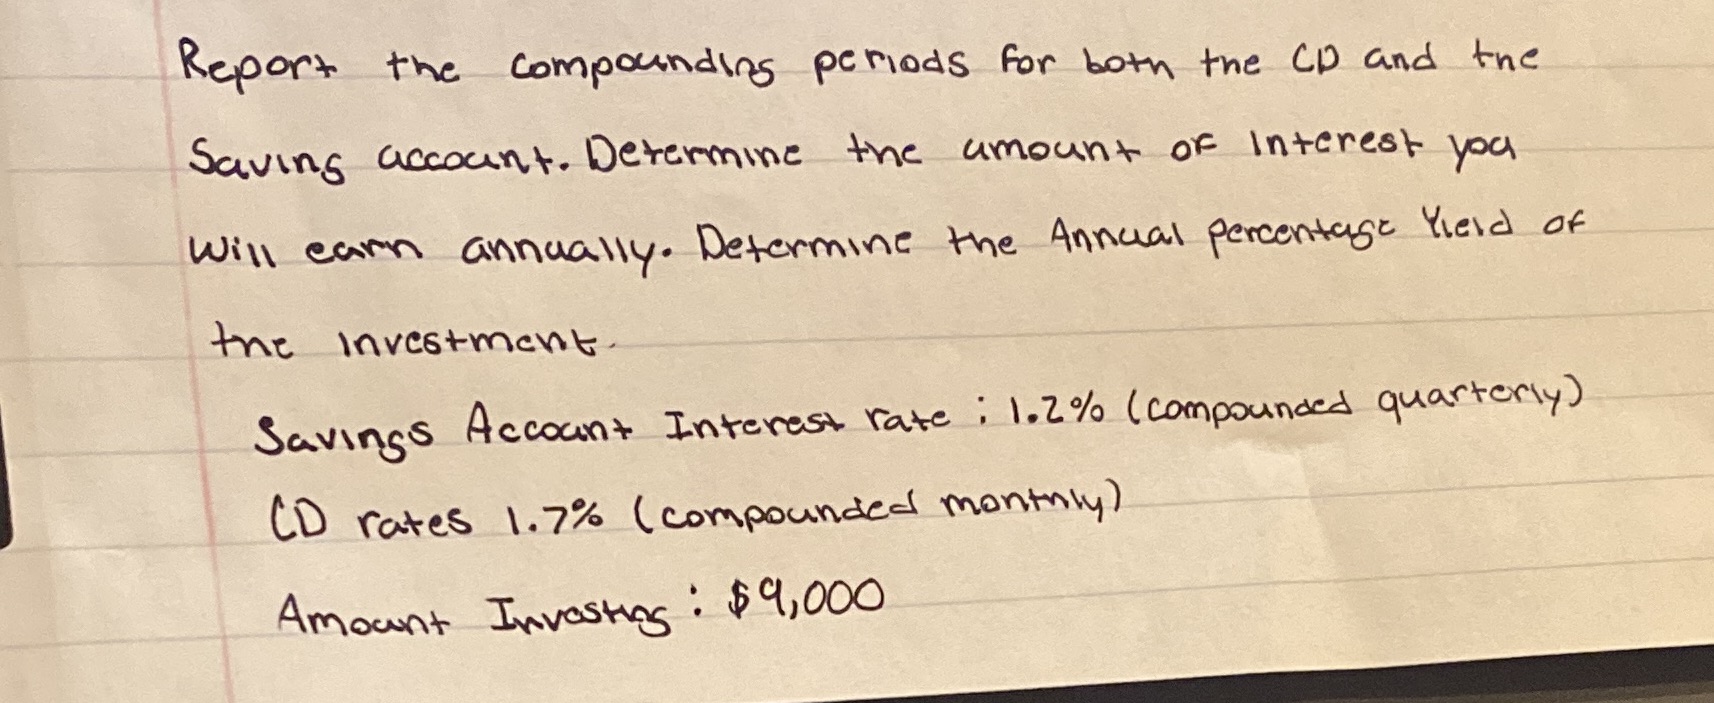 Report the compounding periods for both the CD and the
Saving account. Determine the amount of interest you
will earn annually. Determine the Annual percentage Yield of
the investment.
Savings Account Interest rate : 1.2% (compounded quarterly)
CD rates 1.7% (compounded monthly)
Amount Investing : $9,000